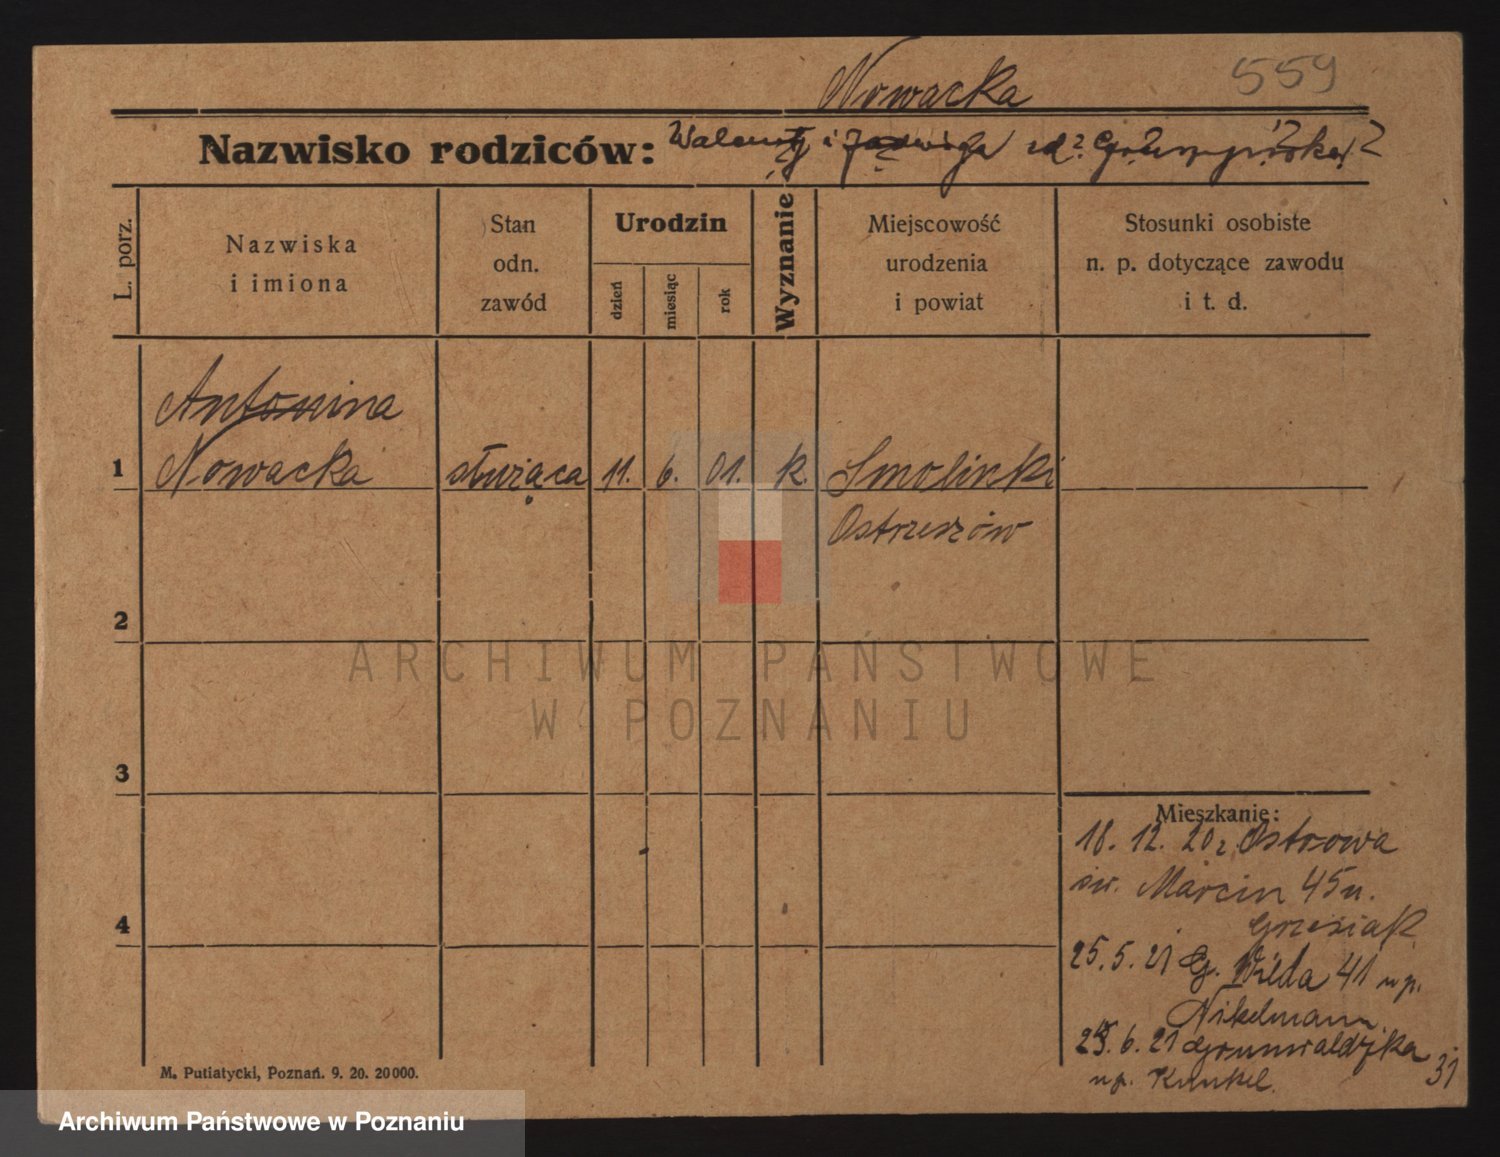 559
Nowacka
Nazwisko rodziców: Walenty i Jadwiga
L. porz.
Nazwiska
i imiona
Stan
odn.
zawód
Urodzin
dzień
miesiąc
rok
Wyznanie
Miejscowość
urodzenia
i powiat
Stosunki osobiste
n. p. dotyczące zawodu
i t. d.
Antonina
1 Nowacka służąca 11. 6. 01. k. Smolinki
Ostrzeszów
2
3
4
Mieszkanie:
18. 12. 20 z Ostrowa
św. Marcin 45 u.
Grzesiak
25. 5. 21 G. Wilda 41 u p.
Nikelmann
25. 6. 21 Grunwaldzka 31
u p. Kunkel.
M. Putiatycki, Poznań. 9. 20. 20000.
ARCHIWUM PAŃSTWOWE
W POZNANIU
Archiwum Państwowe w Poznaniu